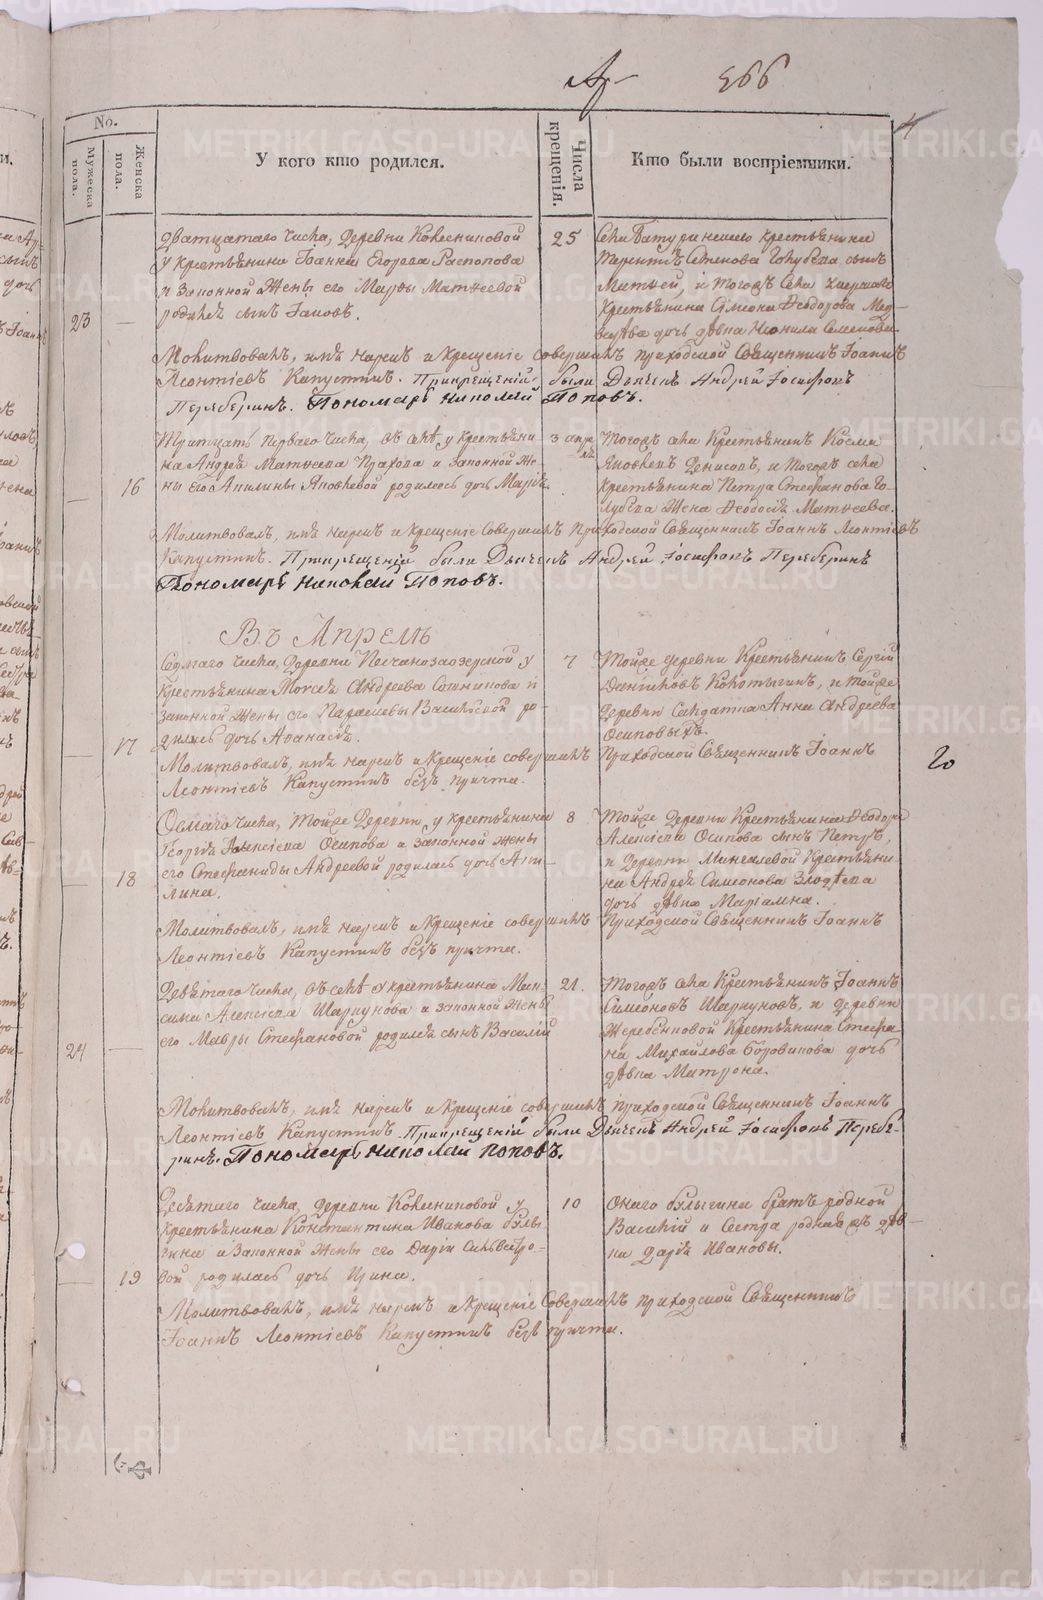 566
4
No.
Мужеска пола.
Женска пола.
У кого кто родился.
Числа крещенія.
Кто были воспріемники.
Дватцатаго числа, деревни Колесниковой
у крестьянина Іоанна Егорова Распопова
и законной жены его Марѳы Матѳеевой
родился сынъ Іаковъ.
23
25
Села Батуринскаго крестьянина
Терентія Стефанова Голубева сынъ
Матѳей, и тогожъ села
крестьянина Симеона Ѳеодорова
дочь дѣвка Неонила Семенова
Молитвовалъ, имя нарекъ и крещеніе совершилъ приходской священникъ Іоаннъ
Леонтіевъ Капустинъ. При крещеніи были Дьячекъ Андрей Іосифовъ
Переберинъ. Пономарь Николай Поповъ.
Тритцать перваго числа, въ селѣ у крестьяни
на Андрея Матѳеева Прахова и законной же
ны его Акилины Яковлевой родилась дочь Марія.
16
3 апре
ля
Тогожъ села крестьянинъ Косма
Яковлевъ Денисовъ, и тогожъ села
крестьянина Петра Стефанова Го-
лубева жена Ѳеодосія Матѳеева.
Молитвовалъ, имя нарекъ и крещеніе совершилъ приходской священникъ Іоаннъ Леонтіевъ
Капустинъ. При крещеніи были Дьячекъ Андрей Іосифовъ Переберинъ
Пономарь Николай Поповъ.
Въ Апрелѣ
Седмаго числа, деревни Песчаноозерской у
крестьянина Моисея Андреева Сотникова и
законной жены его Параскевы Васильевой ро-
дилась дочь Аѳанасія.
17
7
Тойже деревни крестьянинъ Сергій
Даниловъ Колотыгинъ, и тойже
деревни солдатка Анна Андреева
Осиповыхъ.
Молитвовалъ, имя нарекъ и крещеніе совершилъ приходской священникъ Іоаннъ
Леонтіевъ Капустинъ безъ причта.
20
Осмаго числа, тойже деревни, у крестьянина
Георгія Алексіева Осипова и законной жены
его Стефаниды Андреевой родилась дочь Аки-
лина.
18
8
Тойже деревни крестьянина Ѳеодора
Алексіева Осипова сынъ Петръ,
и деревни Мингалевой крестьяни-
на Андрея Симеонова Злодѣева
дочь дѣвка Маріамна.
Молитвовалъ, имя нарекъ и крещеніе совершилъ приходской священникъ Іоаннъ
Леонтіевъ Капустинъ безъ причта.
Девятаго числа, въ селѣ у крестьянина Мак-
сима Алексіева Шаркунова и законной жены
его Мавры Стефановой родился сынъ Василій
24
21.
Тогожъ села крестьянинъ Іоаннъ
Симеоновъ Шаркуновъ, и деревни
Жеребенковой крестьянина Стефа
на Михайлова Боровикова дочь
дѣвка Матрона.
Молитвовалъ, имя нарекъ и крещеніе совершилъ приходской священникъ Іоаннъ
Леонтіевъ Капустинъ. При крещеніи были Дьячекъ Андрей Іосифовъ Перебе-
ринъ. Пономарь Николай Поповъ.
Десятаго числа, деревни Колесниковой у
крестьянина Константина Иванова Булы
гина и законной жены его Даріи Сильвестро-
вой родилась дочь Ирина.
19
10
Онаго Булыгина братъ родной
Василій и сестра родная дѣв-
ка Дарія Ивановы.
Молитвовалъ, имя нарекъ и крещеніе совершилъ приходской священникъ
Іоаннъ Леонтіевъ Капустинъ безъ причта.
METRIKI.GASO-URAL.RU